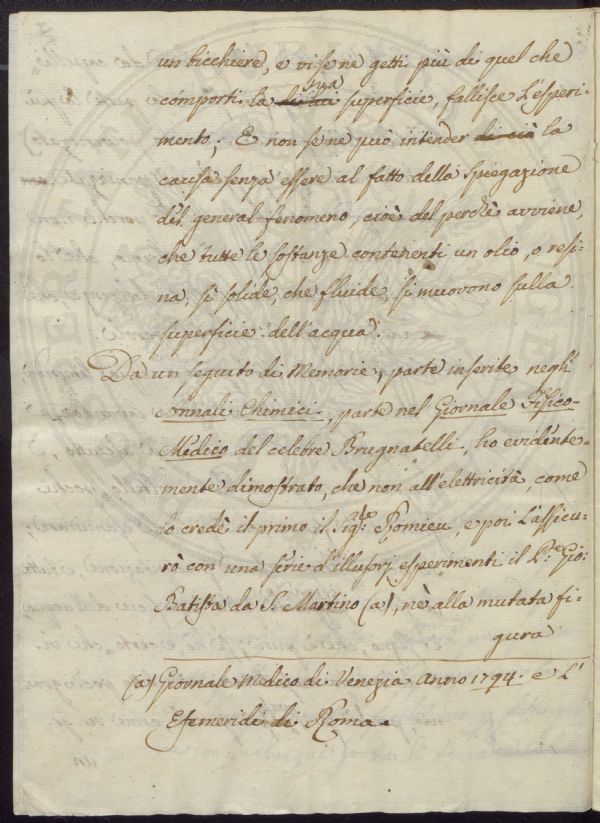 un bicchiere, e vi se ne getti più di quel che
comporti la di lui sua superficie, fallisce l'esperi-
mento; E non se ne può intender di ciò la
causa senza essere al fatto della spiegazione
del general fenomeno, cioè del perchè avviene,
che tutte le sostanze contenenti un olio, o resi-
na, sì solide, che fluide, si muovono sulla
superficie dell'acqua.
Da un seguito di Memorie, parte inserite negli
Annali Chimici, parte nel Giornale Fisico-
Medico del celebre Brugnatelli, ho evidente-
mente dimostrato, che non all'elettricità, come
lo credè il primo il Sig.e Romieu, e poi l'assicu-
rò con una serie d'illusorj esperimenti il P.re Gio:
Batista da S. Martino (a), nè alla mutata fi-
gura
(a) Giornale Medico di Venezia Anno 1794. e l'
Efemeridi di Roma.